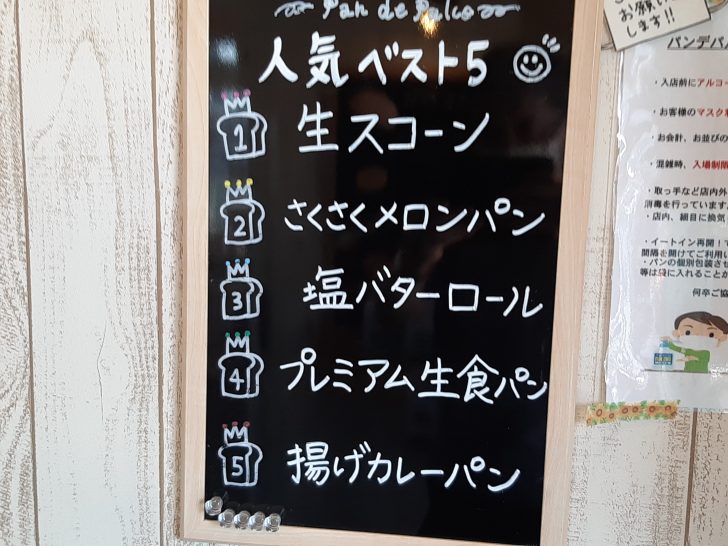 Pan de Palco
人気ベスト5
1 生スコーン
2 さくさくメロンパン
3 塩バターロール
4 プレミアム生食パン
5 揚げカレーパン
お願い
します!!
パンデパ
・入店前にアルコー
・お客様のマスク
・お会計、お並びの
・混雑時、入場制限
・取っ手など店内外
消毒を行っています
・店内、細目に換気
・イートイン再開!
間隔を開けてご利用
・パンの個別包装させ
等は袋に入れることが
何卒ご協